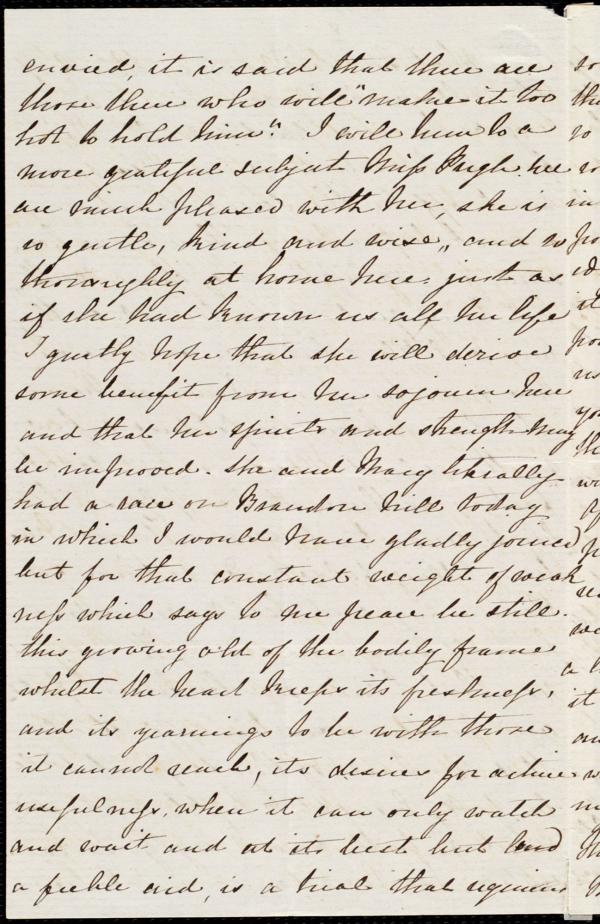 envied, it is said that there are
those there who will "make it too
hot to hold him". I will turn to a
more grateful subject Miss Pugh. we
are much pleased with her, she is
so gentle, kind and wise,, and so
thoroughly at home here. just as
if she had known us all her life
I greatly hope that she will derive
some benefit from her sojourn here
and that her spirits and strength may
be improved. She and Mary literally
had a race on Brandon hill today
in which I would have gladly joined
but for that constant weight of weak
ness which says to me peace be still.
this growing old of the bodily frame
whilst the heart keeps its freshness,
and its yearnings to be with those
it cannot reach, its desires for active
usefulness, when it can only watch
and wait and at its best but lend
a feeble aid, is a trial that requires